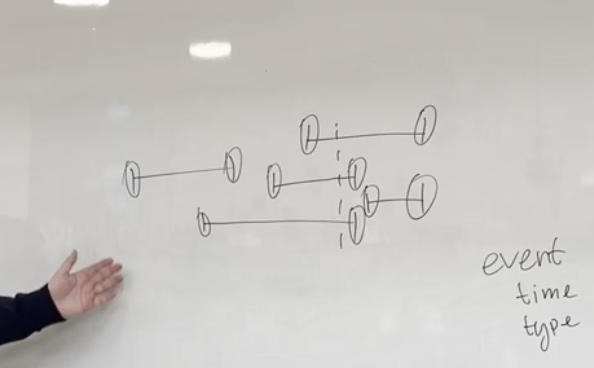 event
time
type